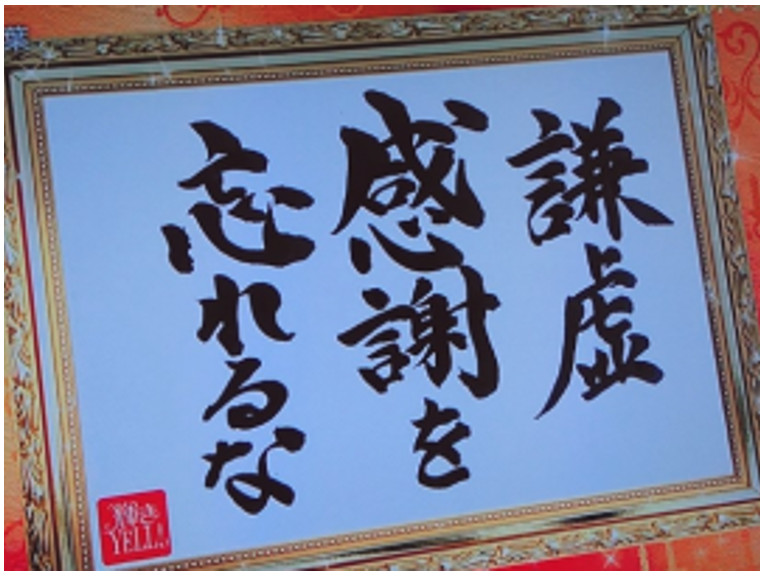 謙虚
感謝を
忘れるな
輝き
YELL!
葉